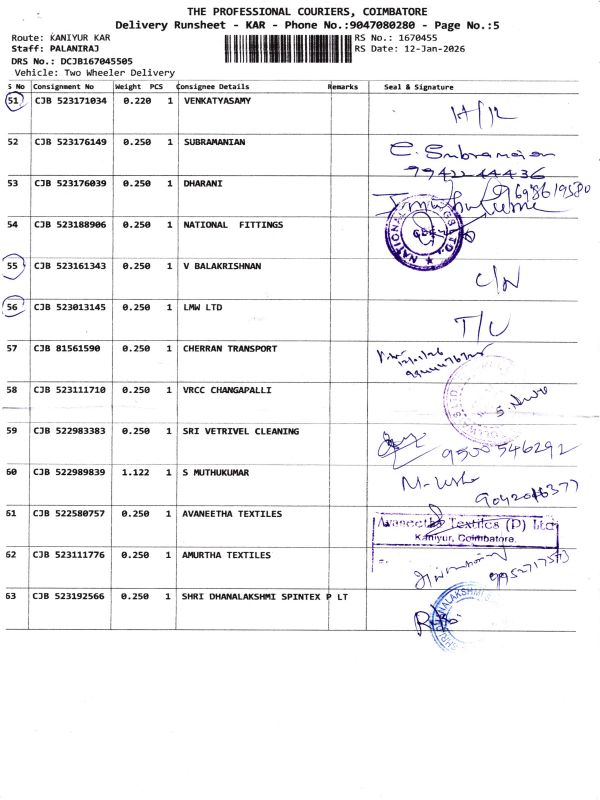 THE PROFESSIONAL COURIERS, COIMBATORE
Delivery Runsheet - KAR - Phone No.:9047080280 - Page No.:5
Route: KANIYUR KAR RS No.: 1670455
Staff: PALANIRAJ RS Date: 12-Jan-2026
DRS No.: DCJB167045505
Vehicle: Two Wheeler Delivery
S No Consignment No Weight PCS Consignee Details Remarks Seal & Signature
51 CJB 523171034 0.220 1 VENKATYASAMY
52 CJB 523176149 0.250 1 SUBRAMANIAN C. Subramanian
9942244436
53 CJB 523176039 0.250 1 DHARANI 9698619580
54 CJB 523188906 0.250 1 NATIONAL FITTINGS NATIONAL
55 CJB 523161343 0.250 1 V BALAKRISHNAN C/N
56 CJB 523013145 0.250 1 LMW LTD T/U
57 CJB 81561590 0.250 1 CHERRAN TRANSPORT
58 CJB 523111710 0.250 1 VRCC CHANGAPALLI
59 CJB 522983383 0.250 1 SRI VETRIVEL CLEANING 9500546292
60 CJB 522989839 1.122 1 S MUTHUKUMAR
61 CJB 522580757 0.250 1 AVANEETHA TEXTILES Avaneetha Textiles (P) Ltd
Kaniyur, Coimbatore.
62 CJB 523111776 0.250 1 AMURTHA TEXTILES
63 CJB 523192566 0.250 1 SHRI DHANALAKSHMI SPINTEX P LT